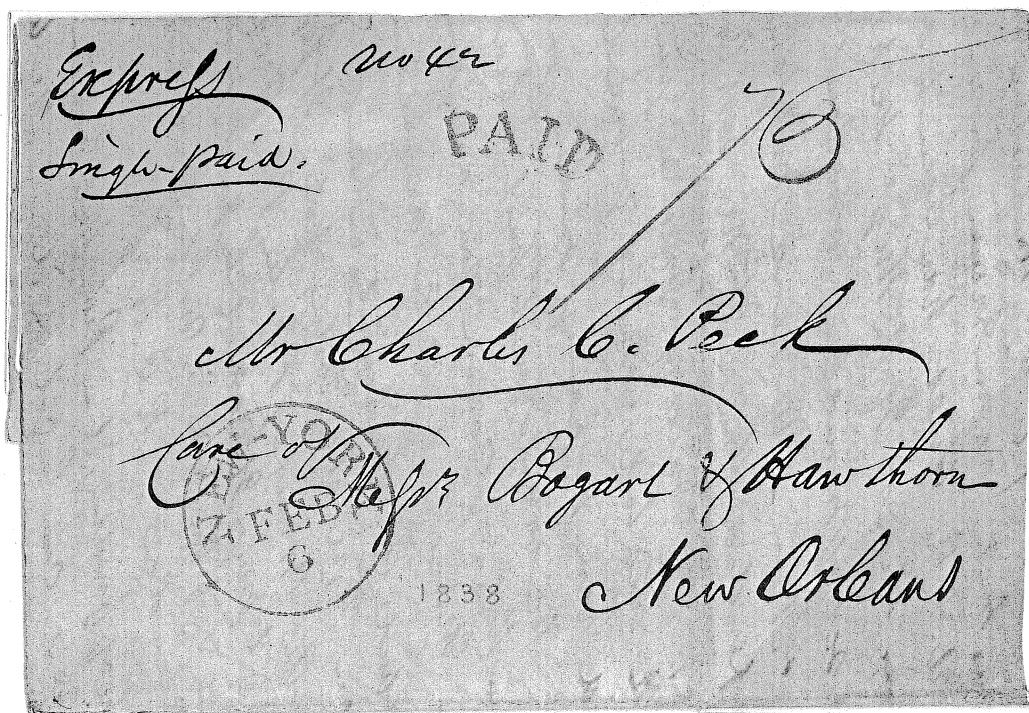 Express
No 42
Single paid.
PAID
75
Mr Charles C. Peck
Care of Messrs Bogart & Hawthorn
New Orleans
NEW-YORK
FEB
6
1838